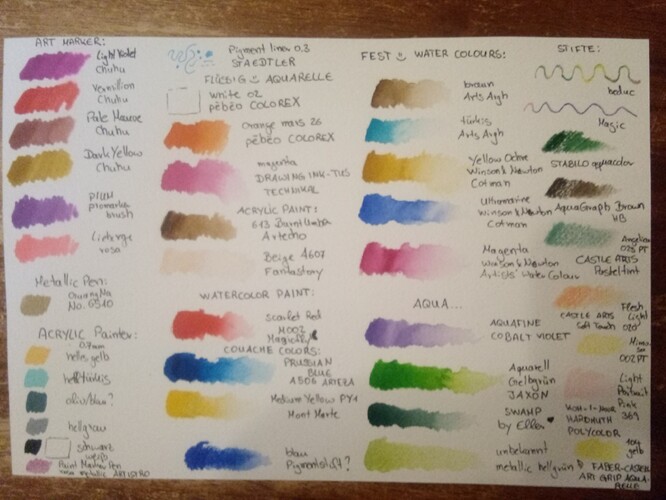 ART MARKER:
Light Violet
Chuhu
Vermilion
Chuhu
Pale Mauve
Chuhu
Dark Yellow
Chuhu
PLUM
promarker
brush
rosa
Metallic Pen:
No. 6510
ACRYLIC Painter:
0.7mm
hellesgelb
helltürkis
olivblau?
hellgrau
schwarz
weiß
Paint Marker Pen
metallic ARTISTRO
Pigment liner 0,3
STAEDTLER
FLÜSSIG AQUARELLE
white 02
pébéo COLOREX
Orange mars 26
pébéo COLOREX
magenta
DRAWING INK-TUS
TECHNIKAL
ACRYLIC PAINT:
613 Burnt Umbra
Artecho
Beige A607
Fantastory
WATERCOLOR PAINT:
Scarlet Red
M002
Magicfly
GOUACHE COLORS:
PRUSSIAN
BLUE
A506 ARTEZA
Medium Yellow PY1
Mont Marte
blau
FEST WATER COLOURS:
braun
Arts Argh
türkis
Arts Argh
Yellow Ochre
Winsor & Newton
Cotman
Ultramarine
Winsor & Newton
Cotman
Magenta
Winsor & Newton
Artists' Water Colour
AQUA...
AQUAFINE
COBALT VIOLET
Aquarell
Gelbgrün
JAXON
SWAMP
by Ellen
unbekannt
metallic hellgrün
STIFTE:
Magic
STABILO aquacolor
AquaGraph Brown
HB
025 PT
CASTLE ARTS
Pastel tint
Flesh
CASTLE ARTS Light
Soft Touch 020
002 PT
Light
Portrait
Pink
KOH-I-NOOR 369
HARDMUTH
POLYCOLOR
gelb
FABER-CASTELL
ART GRIP AQUA-
RELLE